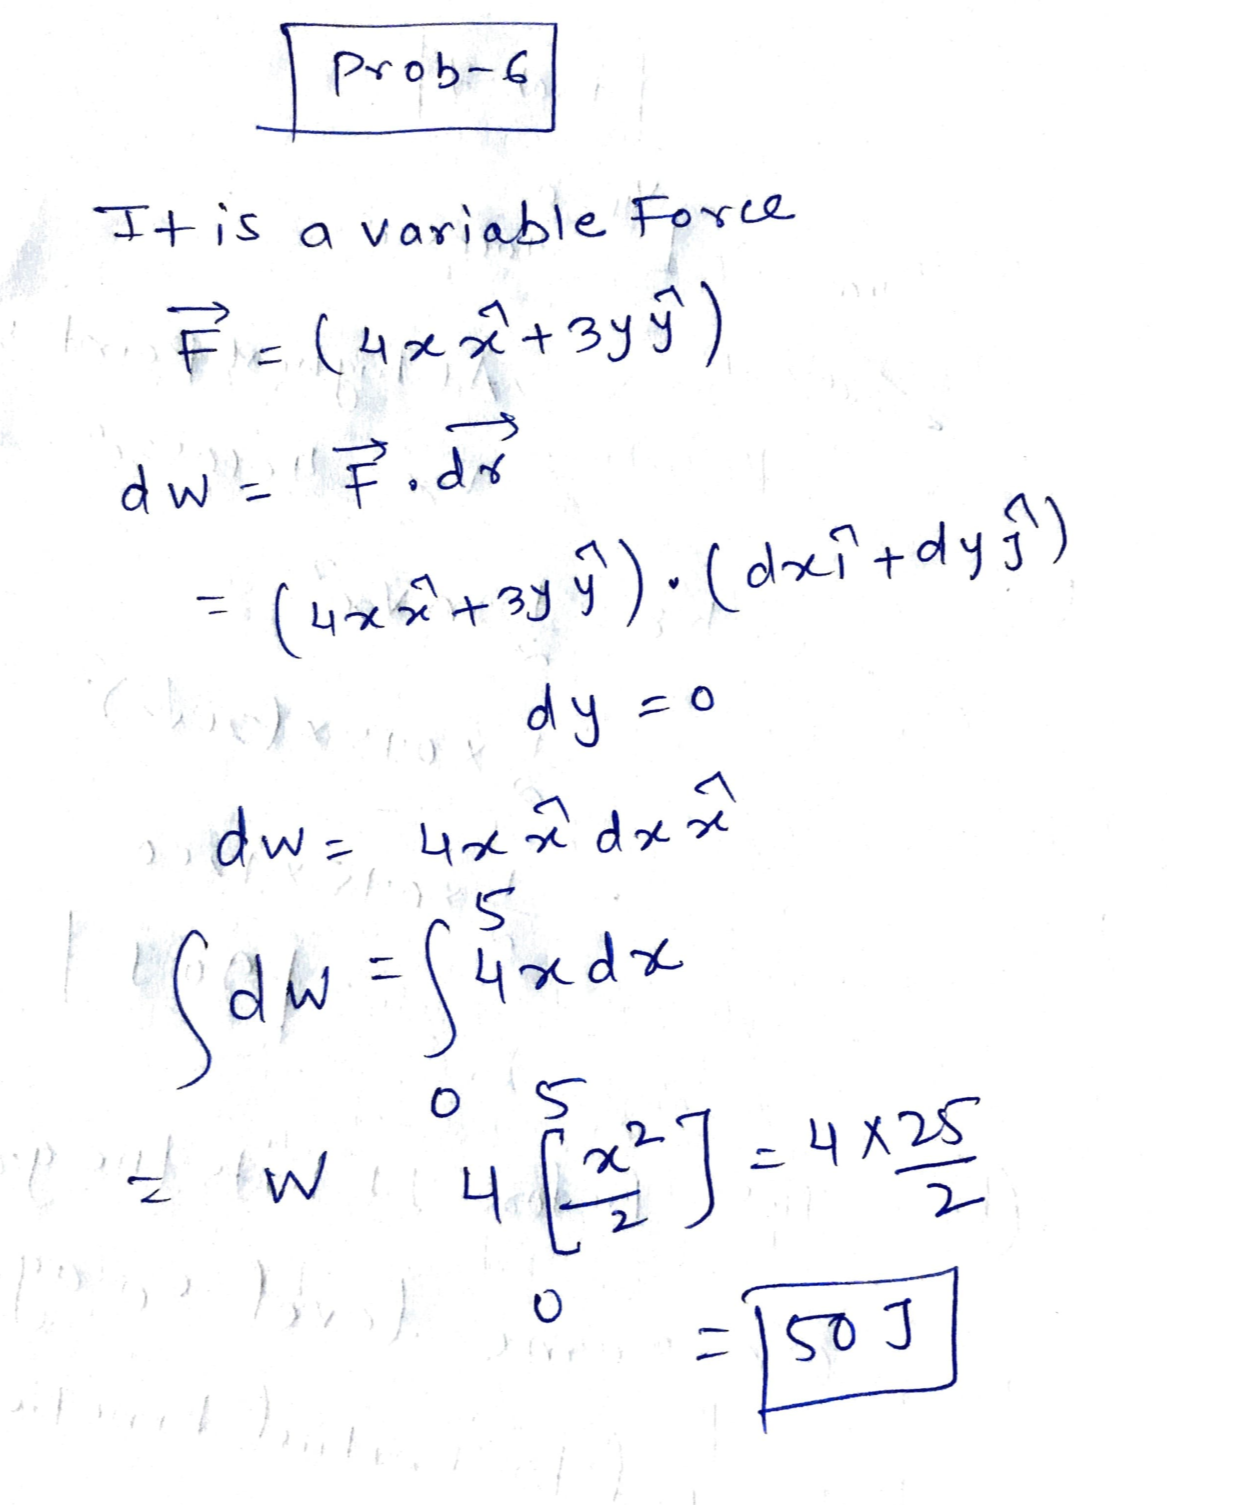 Prob-6
It is a variable Force
F⃗ = (4x x̂ + 3y ŷ)
dw = F⃗ . dr⃗
= (4x x̂ + 3y ŷ) . (dx î + dy ĵ)
dy = 0
dw = 4x x̂ dx x̂
∫dw = ∫₀⁵ 4x dx
= W 4 [x²/2]₀⁵ = 4 × 25/2
= 50 J